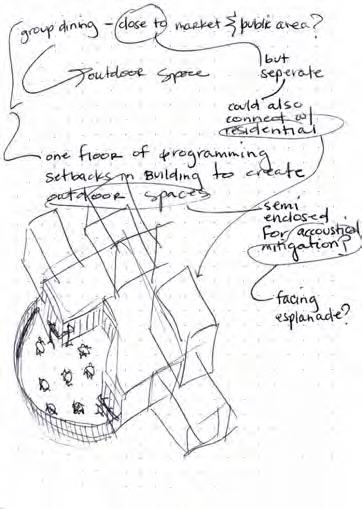 group dining – close to market & public area?
outdoor space
but
seperate
could also
connect w/
residential
one floor of programming
setbacks in Building to create
outdoor spaces
semi
enclosed
for accoustical
mitigation?
facing
esplanade?